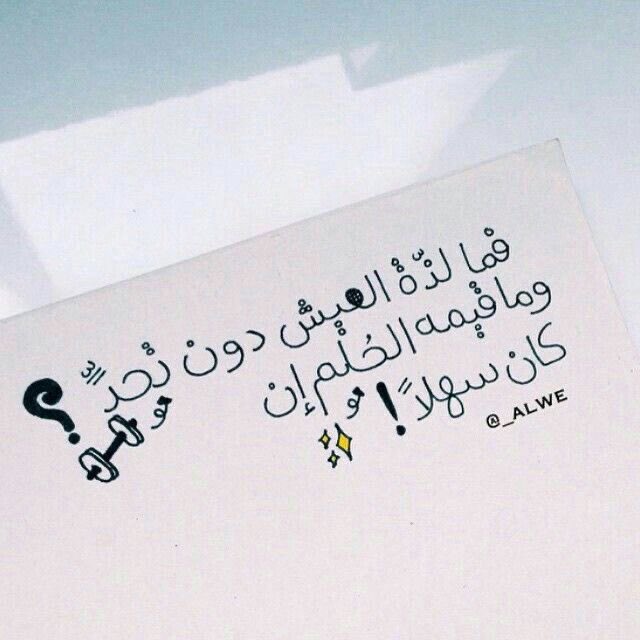 فما لذّة العيش دون تحدٍّ؟
وما قيمه الحُلم إن
كان سهلاً!
@_ALWE